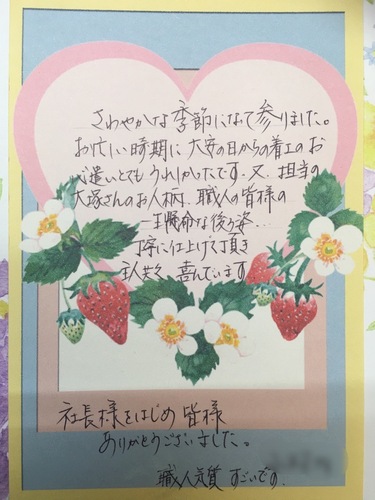 さわやかな季節になって参りました。
お忙しい時期に大安の日からの着工のお
心遣いとてもうれしかったです。又、担当の
大塚さんのお人柄、職人の皆様の
一生懸命な後ろ姿…
丁寧に仕上げて頂き
主人共々 喜んでいます
社長様をはじめ 皆様
ありがとうございました。
職人気質 すごいです。